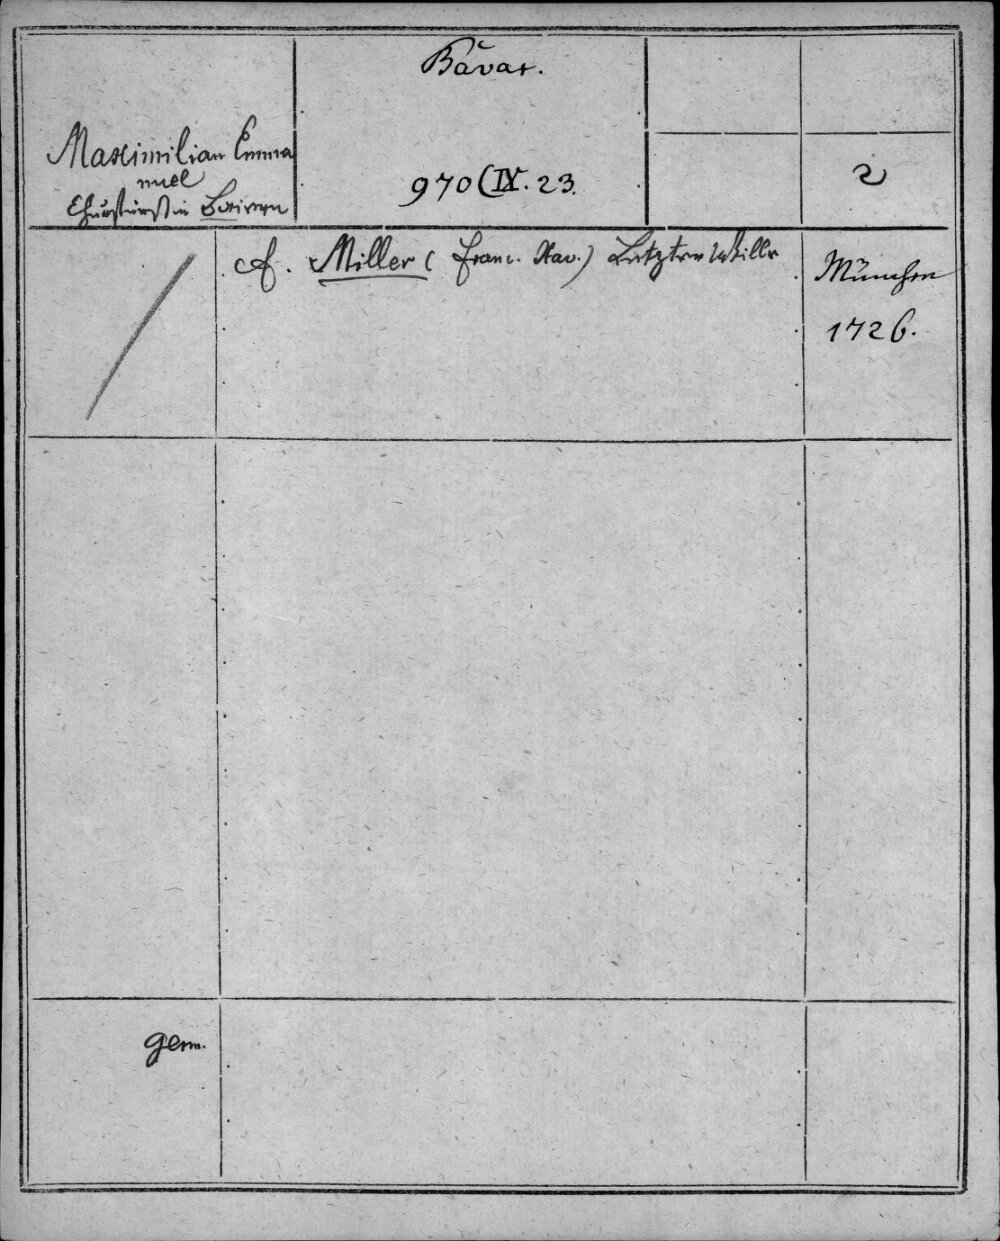 Bavar.
Maximilian Emma
nuel
Churfürst in Baiern
970(IX. 23.
2
A. Miller (Franc. Xav.) Letzter Wille
München
1726.
germ.